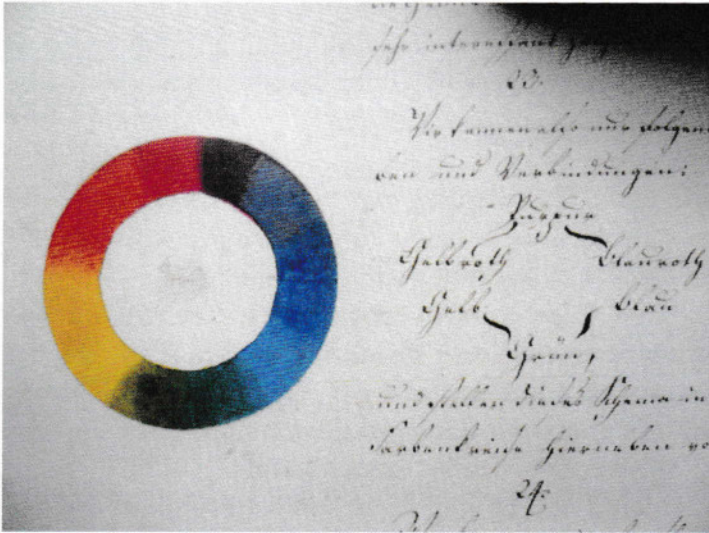 sehr interessant
23.
Wir kennen also nur folgen
ben und Verbindungen:
Purpur
Gelbroth Blauroth
Gelb Blau
Grün,
und stellen dieses Schema in
Farbenkreise hierneben vo
24.